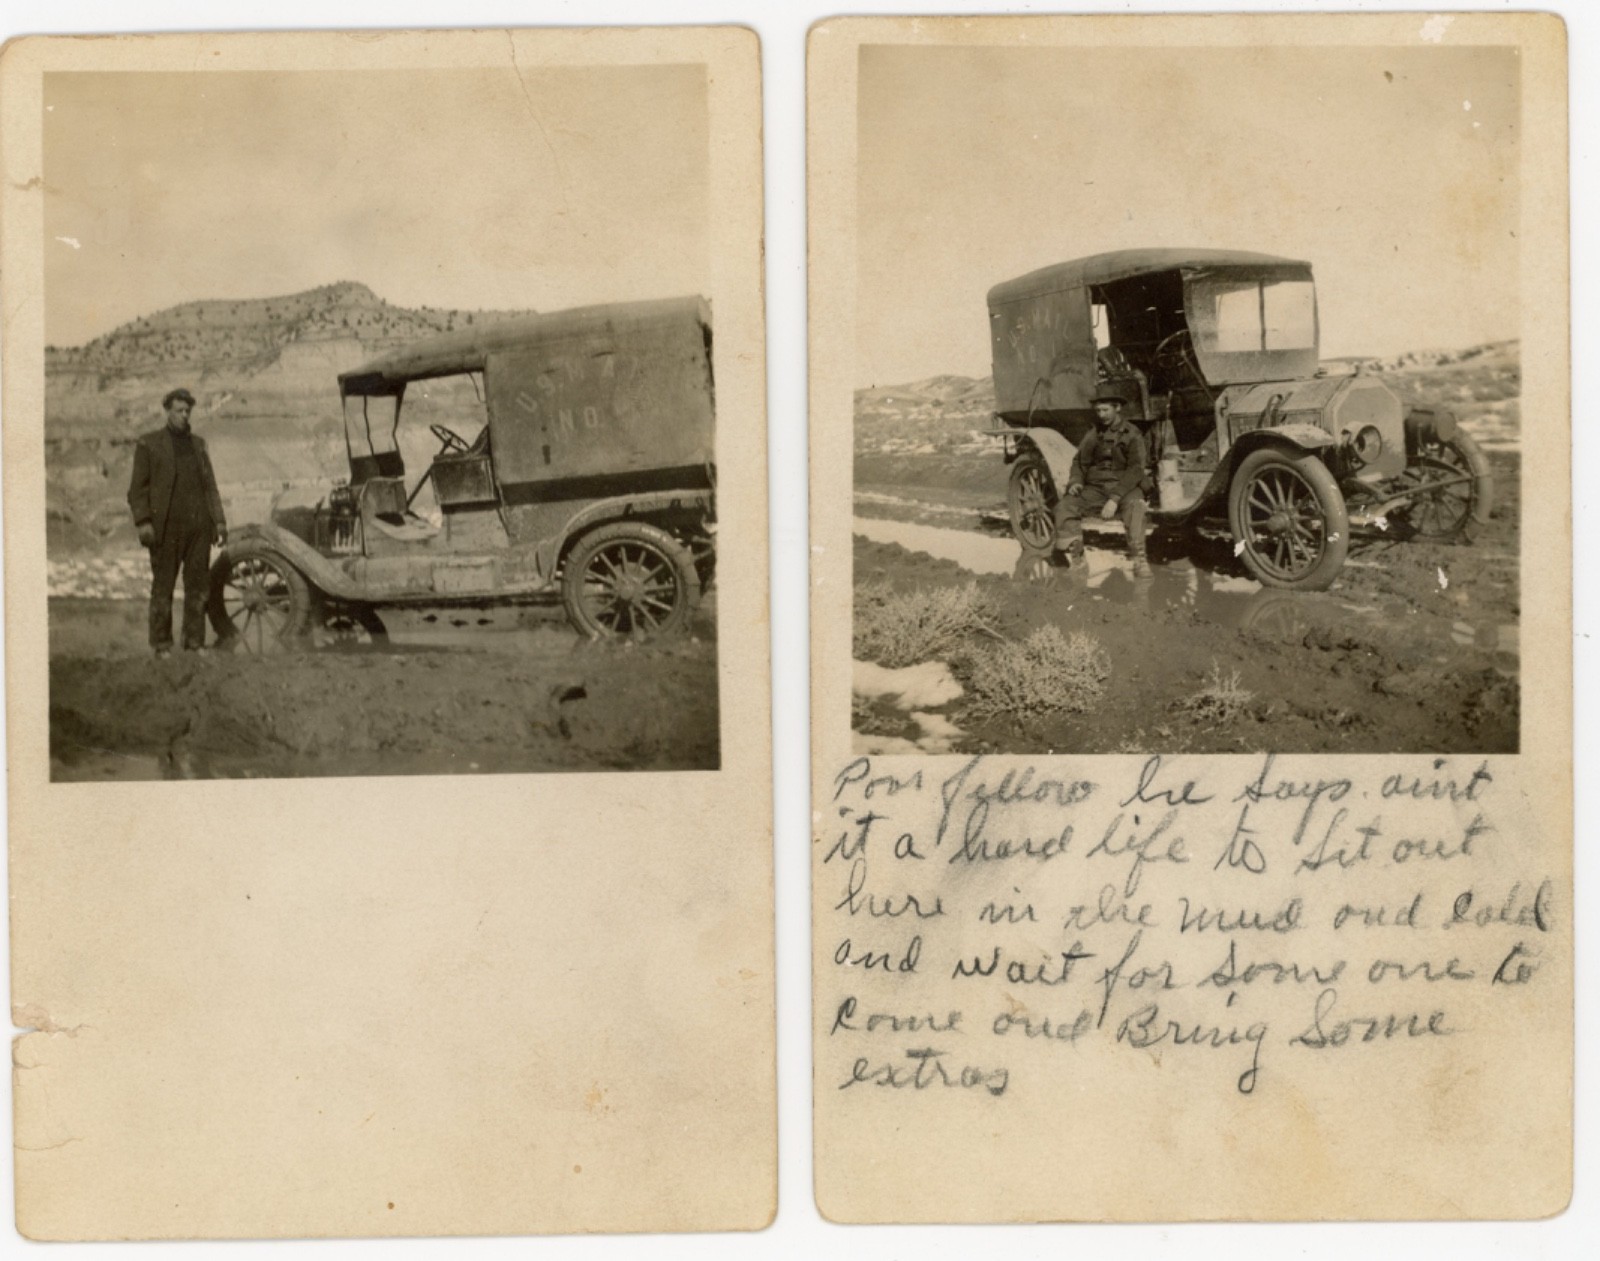 U.S. MA
NO
U.S. MAIL
NO
Poor fellow he says. aint
it a hard life to Sit out
here in the mud and Cold
and wait for Some one to
Come and Bring Some
extras